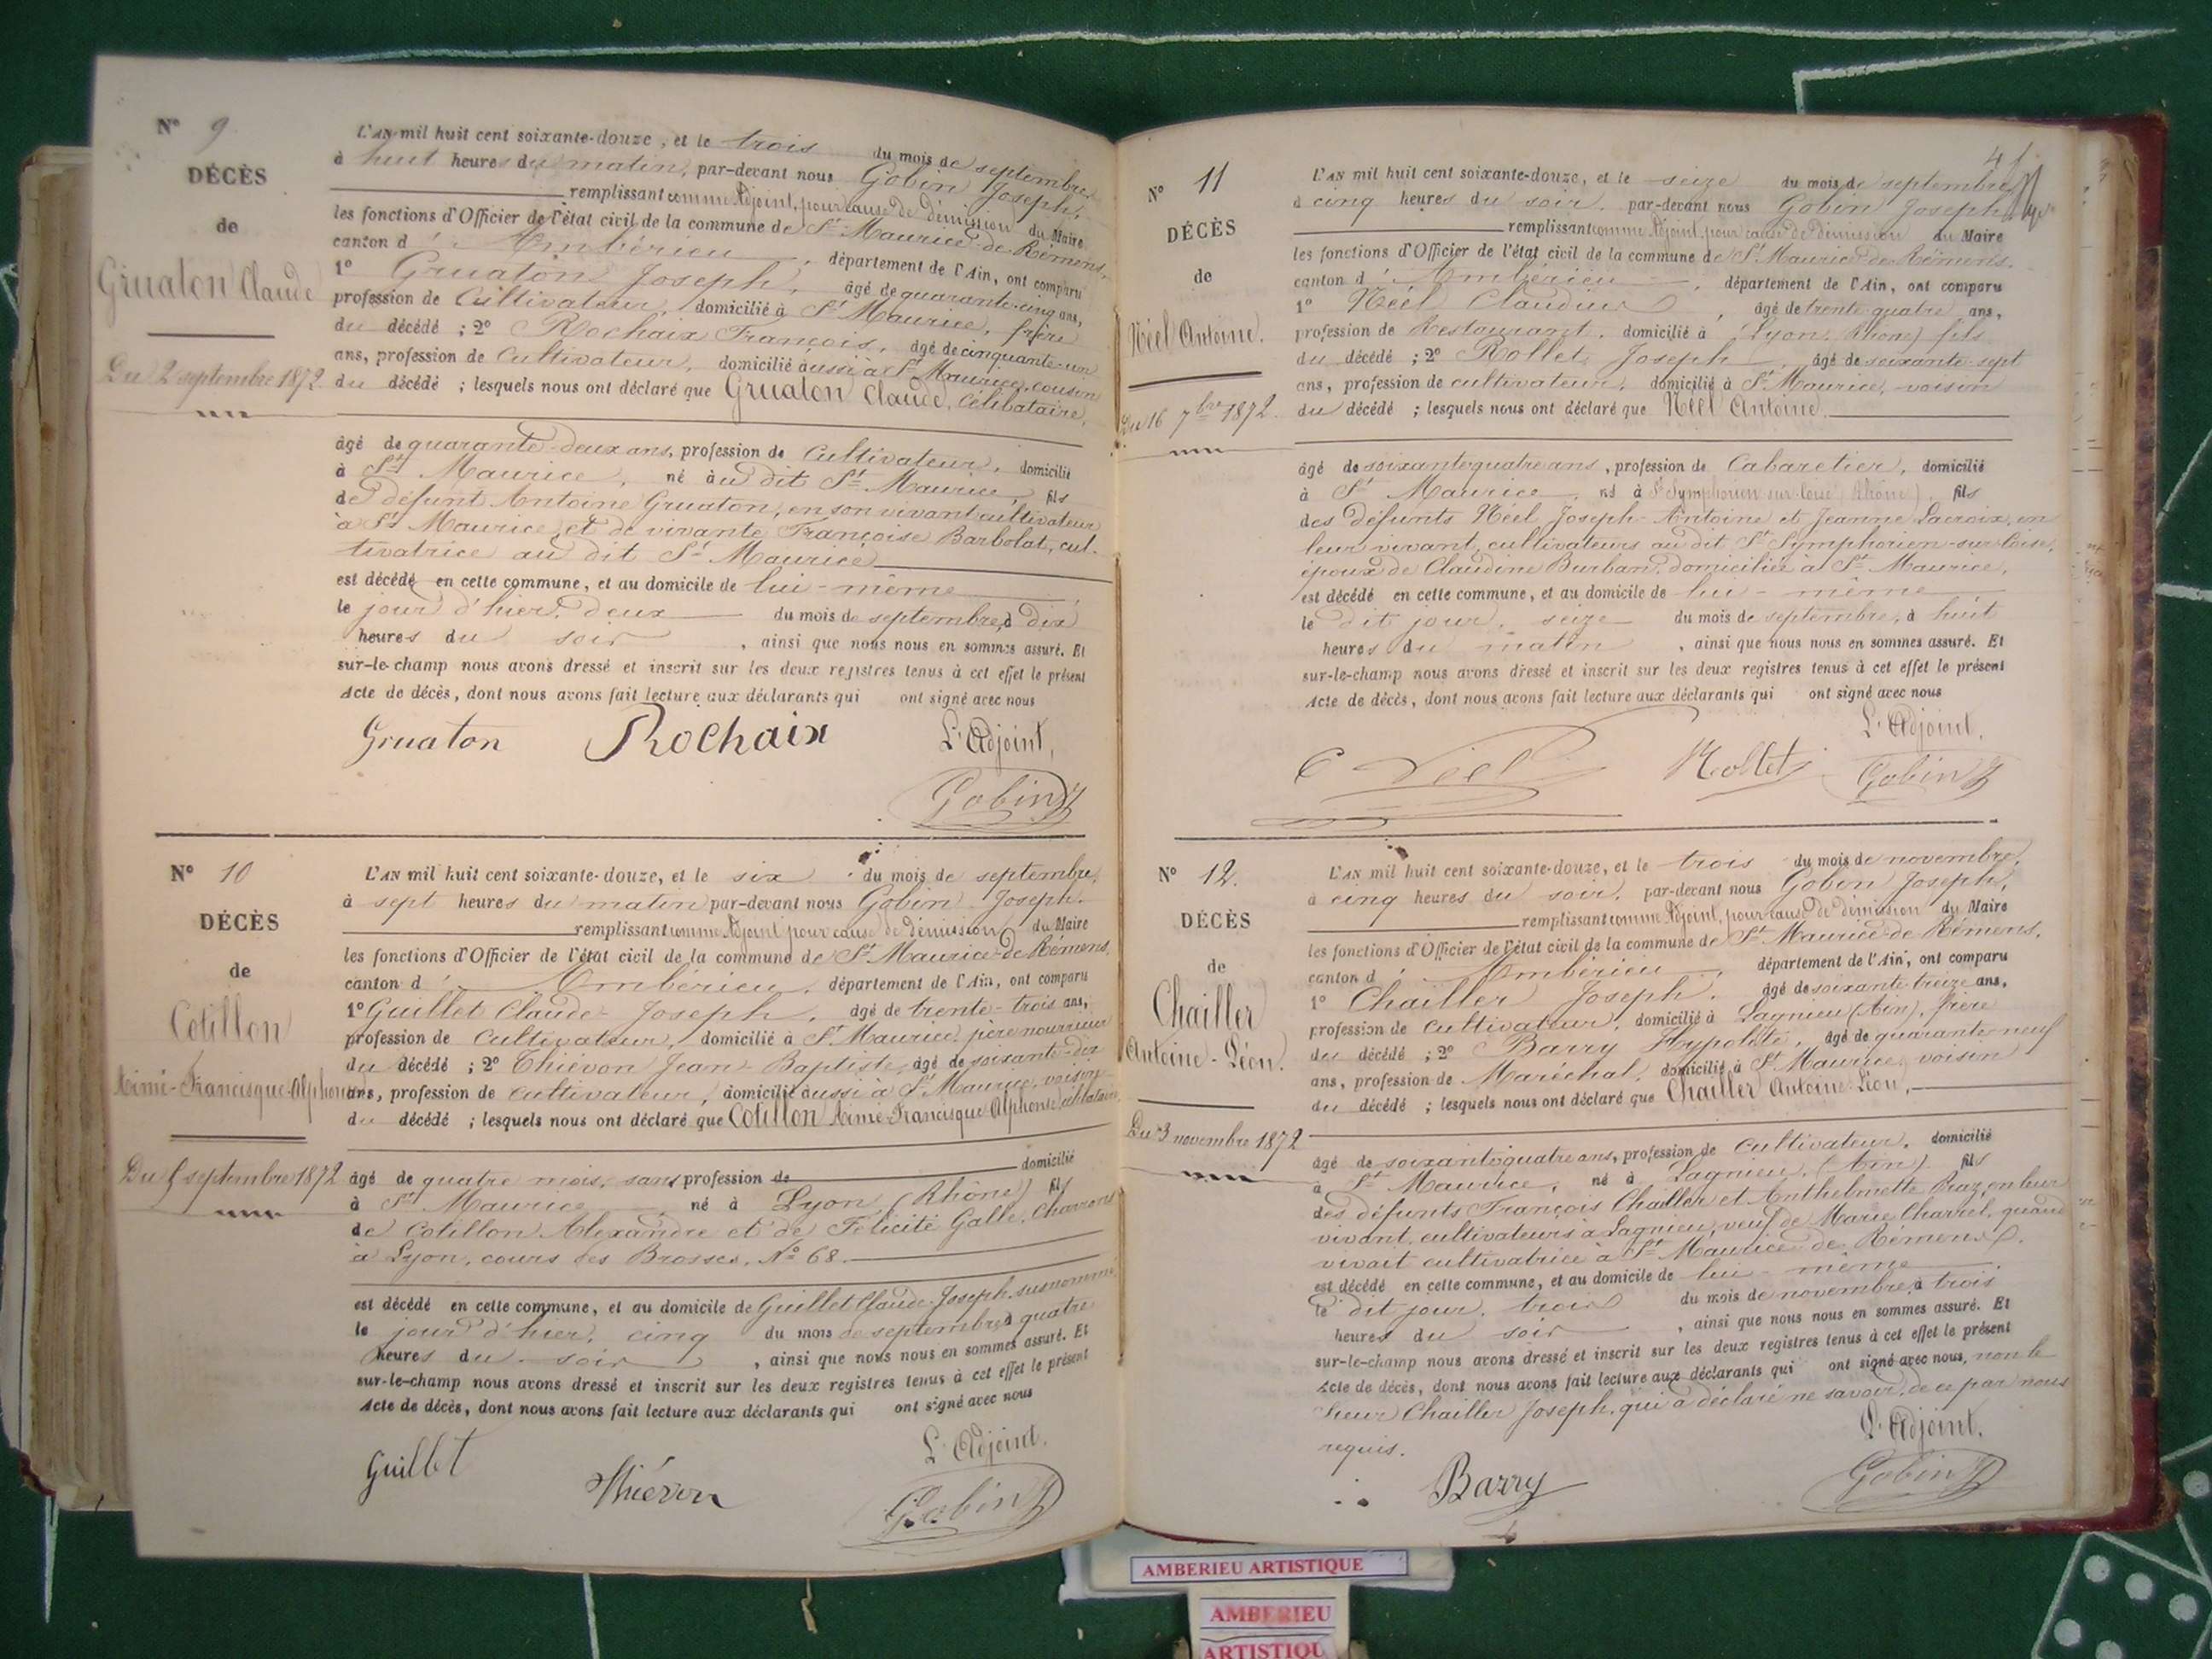 N° 9
DÉCÈS
de
Gruaton Claude
Du 2 septembre 1872
L'AN mil huit cent soixante-douze, et le trois du mois de septembre
à huit heures du matin, par-devant nous Gobin Joseph,
remplissant comme Adjoint, pour cause de démission du Maire
les fonctions d'Officier de l'état civil de la commune de St Maurice-de-Rémens,
canton d' Ambérieu, département de l'Ain, ont comparu
1° Gruaton Joseph, âgé de quarante-cinq ans,
profession de Cultivateur, domicilié à St Maurice, frère
du décédé ; 2° Rochaix François, âgé de cinquante-un
ans, profession de Cultivateur, domicilié aussi à St Maurice, cousin
du décédé ; lesquels nous ont déclaré que Gruaton Claude, Célibataire,
âgé de quarante-deux ans, profession de Cultivateur, domicilié
à St Maurice, né au dit St Maurice, fils
de défunt Antoine Gruaton, en son vivant cultivateur
à St Maurice, et de vivante Françoise Barbolat, cul-
tivatrice au dit St Maurice
est décédé en cette commune, et au domicile de lui-même
le jour d'hier, deux du mois de septembre, à dix
heures du soir, ainsi que nous nous en sommes assuré. Et
sur-le-champ nous avons dressé et inscrit sur les deux registres tenus à cet effet le présent
Acte de décès, dont nous avons fait lecture aux déclarants qui ont signé avec nous
Gruaton Rochaix L'Adjoint,
Gobin J
N° 10
DÉCÈS
de
Cotillon
Aimé-Francisque-Alphonse
Du 5 septembre 1872
L'AN mil huit cent soixante-douze, et le six du mois de septembre,
à sept heures du matin par-devant nous Gobin Joseph,
remplissant comme Adjoint pour cause de démission du Maire
les fonctions d'Officier de l'état civil de la commune de St Maurice-de-Rémens,
canton d' Ambérieu, département de l'Ain, ont comparu
1° Guillet Claude-Joseph, âgé de trente-trois ans,
profession de Cultivateur, domicilié à St Maurice, père nourricier
du décédé ; 2° Thiévon Jean-Baptiste, âgé de soixante-dix
ans, profession de cultivateur, domicilié aussi à St Maurice, voisin
du décédé ; lesquels nous ont déclaré que Cotillon Aimé-Francisque Alphonse, célibataire
âgé de quatre mois, sans profession de domicilié
à St Maurice né à Lyon (Rhône) fils
de Cotillon Alexandre et de Félicité Galle, Charrons
à Lyon, cours des Brosses, N° 68.
est décédé en cette commune, et au domicile de Guillet Claude-Joseph, susnommé
le jour d'hier, cinq du mois de septembre, à quatre
heures du soir, ainsi que nous nous en sommes assuré. Et
sur-le-champ nous avons dressé et inscrit sur les deux registres tenus à cet effet le présent
Acte de décès, dont nous avons fait lecture aux déclarants qui ont signé avec nous
Guillet Thiévon L'Adjoint,
Gobin J
N° 11
DÉCÈS
de
Néel Antoine.
Du 16 7bre 1872.
L'AN mil huit cent soixante-douze, et le seize du mois de septembre,
à cinq heures du soir, par-devant nous Gobin Joseph,
remplissant comme Adjoint, pour cause de démission du Maire
les fonctions d'Officier de l'état civil de la commune de St Maurice-de-Rémens.
canton d' Ambérieu, département de l'Ain, ont comparu
1° Néel Claudius, âgé de trente-quatre ans,
profession de Restaurant, domicilié à Lyon, (Rhône) fils
du décédé ; 2° Rollet Joseph, âgé de soixante-sept
ans, profession de cultivateur, domicilié à St Maurice, voisin
du décédé ; lesquels nous ont déclaré que Néel Antoine.
âgé de soixante quatre ans, profession de Cabaretier, domicilié
à St Maurice, né à St Symphorien sur-Coise (Rhône), fils
des défunts Néel Joseph-Antoine et Jeanne Lacroix, en
leur vivant, cultivateurs au dit St Symphorien-sur-Coise,
époux de Claudine Burban, domiciliée à St Maurice,
est décédé en cette commune, et au domicile de lui-même
le dit jour, seize du mois de septembre, à huit
heures du matin, ainsi que nous nous en sommes assuré. Et
sur-le-champ nous avons dressé et inscrit sur les deux registres tenus à cet effet le présent
Acte de décès, dont nous avons fait lecture aux déclarants qui ont signé avec nous
L'Adjoint,
C Néel Rollet Gobin J
N° 12.
DÉCÈS
de
Chailler
Antoine-Léon.
Du 3 novembre 1872
L'AN mil huit cent soixante-douze, et le trois du mois de novembre,
à cinq heures du soir, par-devant nous Gobin Joseph,
remplissant comme Adjoint, pour cause de démission du Maire
les fonctions d'Officier de l'état civil de la commune de St Maurice-de-Rémens,
canton d' Ambérieu, département de l'Ain, ont comparu
1° Chailler Joseph, âgé de soixante-treize ans,
profession de cultivateur, domicilié à Lagnieu (Ain), frère
du décédé ; 2° Barry Hypolite, âgé de quarante-neuf
ans, profession de Maréchal, domicilié à St Maurice, voisin
du décédé ; lesquels nous ont déclaré que Chailler Antoine Léon,
âgé de soixante quatre ans, profession de cultivateur, domicilié
à St Maurice, né à Lagnieu, (Ain) fils
des défunts François Chailler et Anthelmette Praz, en leur
vivant, cultivateurs à Lagnieu, veuf de Marie Charvel, quand
vivait cultivatrice à St Maurice de Rémens.
est décédé en cette commune, et au domicile de lui-même
le dit jour, trois du mois de novembre, à trois
heures du soir, ainsi que nous nous en sommes assuré. Et
sur-le-champ nous avons dressé et inscrit sur les deux registres tenus à cet effet le présent
Acte de décès, dont nous avons fait lecture aux déclarants qui ont signé avec nous, non le
sieur Chailler Joseph, qui a déclaré ne savoir, de ce par nous
requis.
L'Adjoint,
Barry Gobin J
AMBERIEU ARTISTIQUE
AMBERIEU
ARTISTIQU